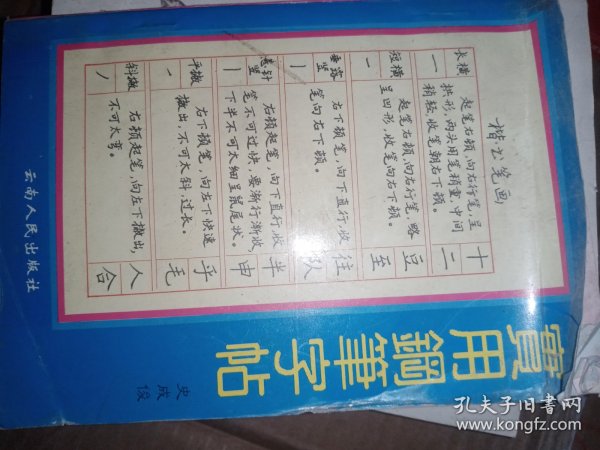 實用鋼筆字帖
史成俊
楷书笔画
长横
一
起笔右顿,向右行笔,呈
拱形,两头用笔稍重,中间
稍轻,收笔朝右下顿。
十
二
短横
一
起笔右顿,向右行笔,略
呈凹形,收笔向右下顿。
豆
至
垂露竖
丨
右下顿笔,向下直行,收
笔向右下顿。
往
队
悬针竖
丨
右顿起笔,向下直行,收
笔不可过快,要渐行渐收
下半不可太细呈鼠尾状。
半
申
平撇
右下顿笔,向左下快速
撇出,不可太斜、过长。
乎
毛
斜撇
丿
右顿起笔,向左下撇出,
不可太弯。
人
合
云南人民出版社
孔夫子旧书网
www.kongfz.com